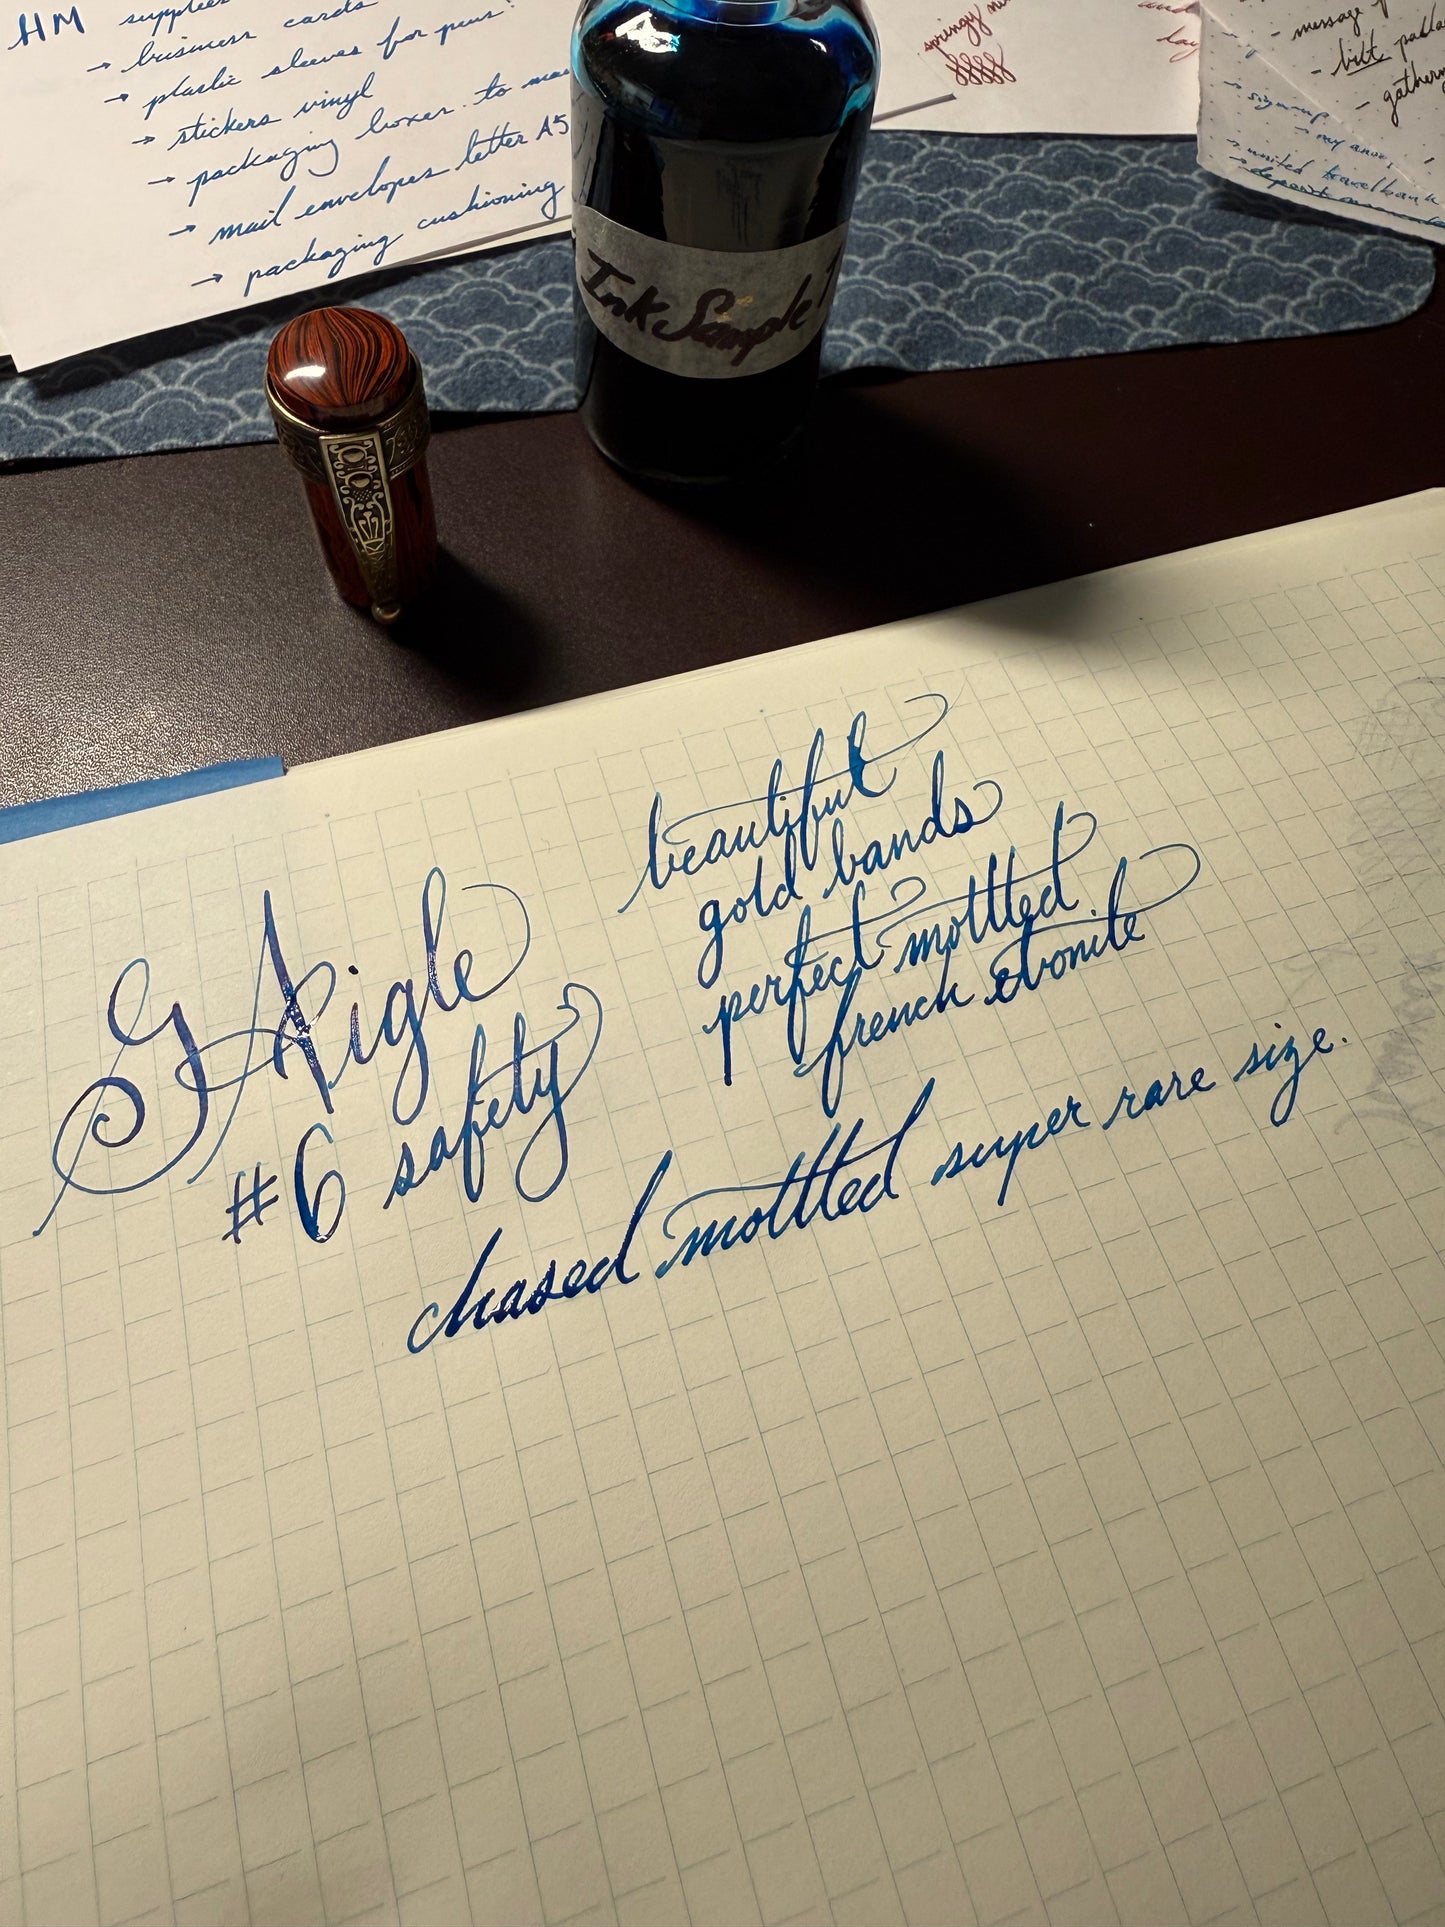 HM supplies
→ business cards
→ plastic sleeves for pens?
→ stickers vinyl
→ packaging boxes to
→ mail envelopes letter A5
→ packaging cushioning
Ink Sample
springy
- message
- bilt
- gathering
→ signup
→ united travelbank
→ deposit
G Aigle
#6 safety
beautiful
gold bands
perfect mottled
french ebonite
chased mottled super rare size.